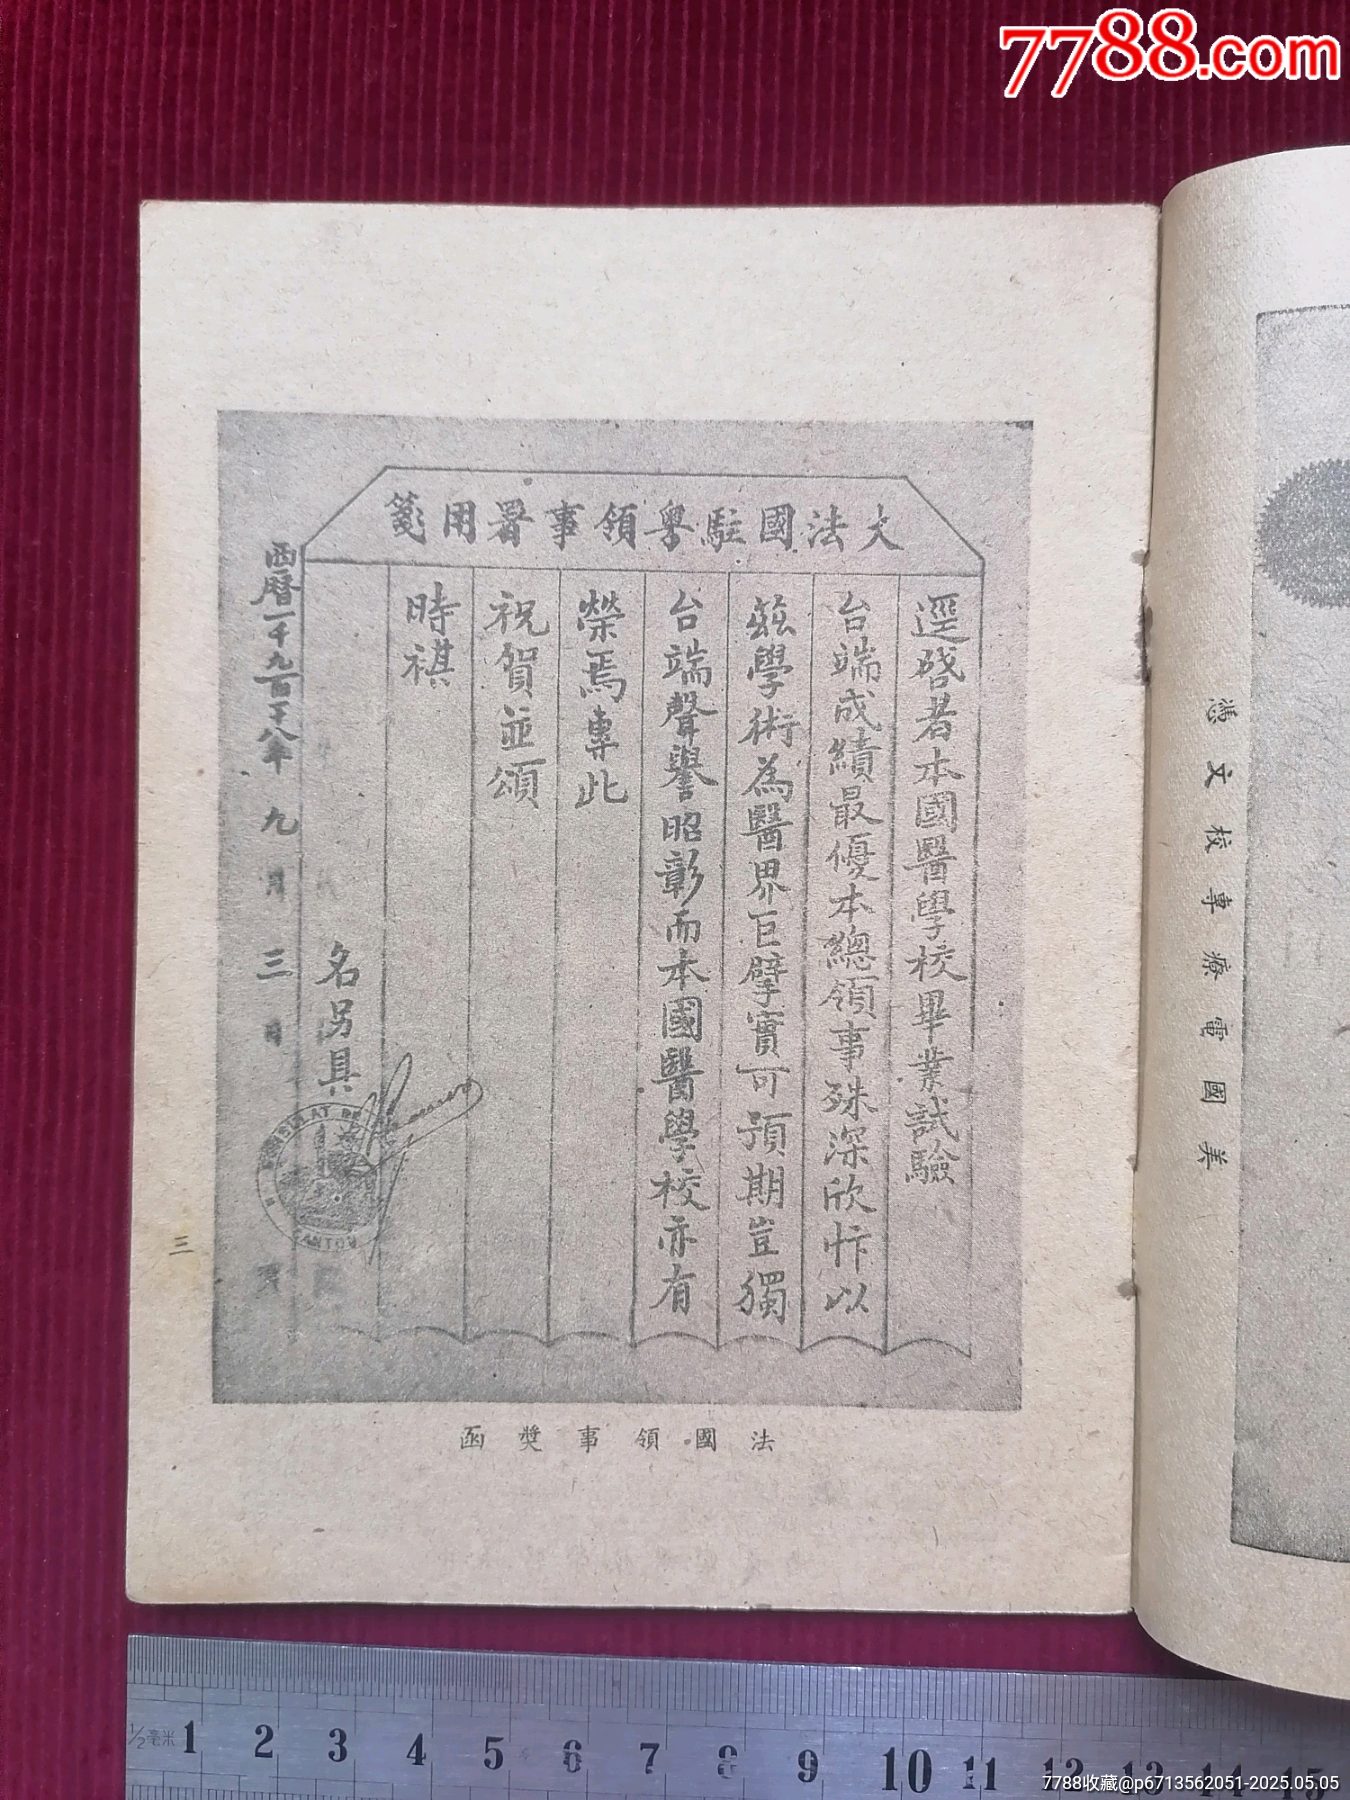 7788.com
大法國駐粵領事署用箋
逕啓者本國醫學校畢業試驗
台端成績最優本總領事殊深欣忭以
茲學術為醫界巨擘實可預期豈獨
台端聲譽昭彰而本國醫學校亦有
榮焉專此
祝賀並頌
時祺
名另具
西曆一千九百十八年九月三日
CONSULAT DE
CANTON
法國領事獎函
三
美國電療專校文憑
1/2毫米 1 2 3 4 5 6 7 8 9 10 11 12 13 14 15
7788收藏@p6713562051-2025.05.05